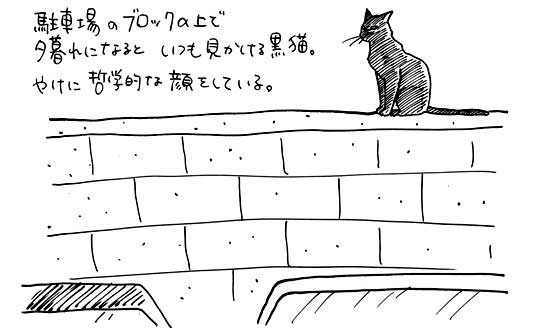 駐車場のブロックの上で
夕暮れになると いつも見かける黒猫。
やけに哲学的な顔をしている。